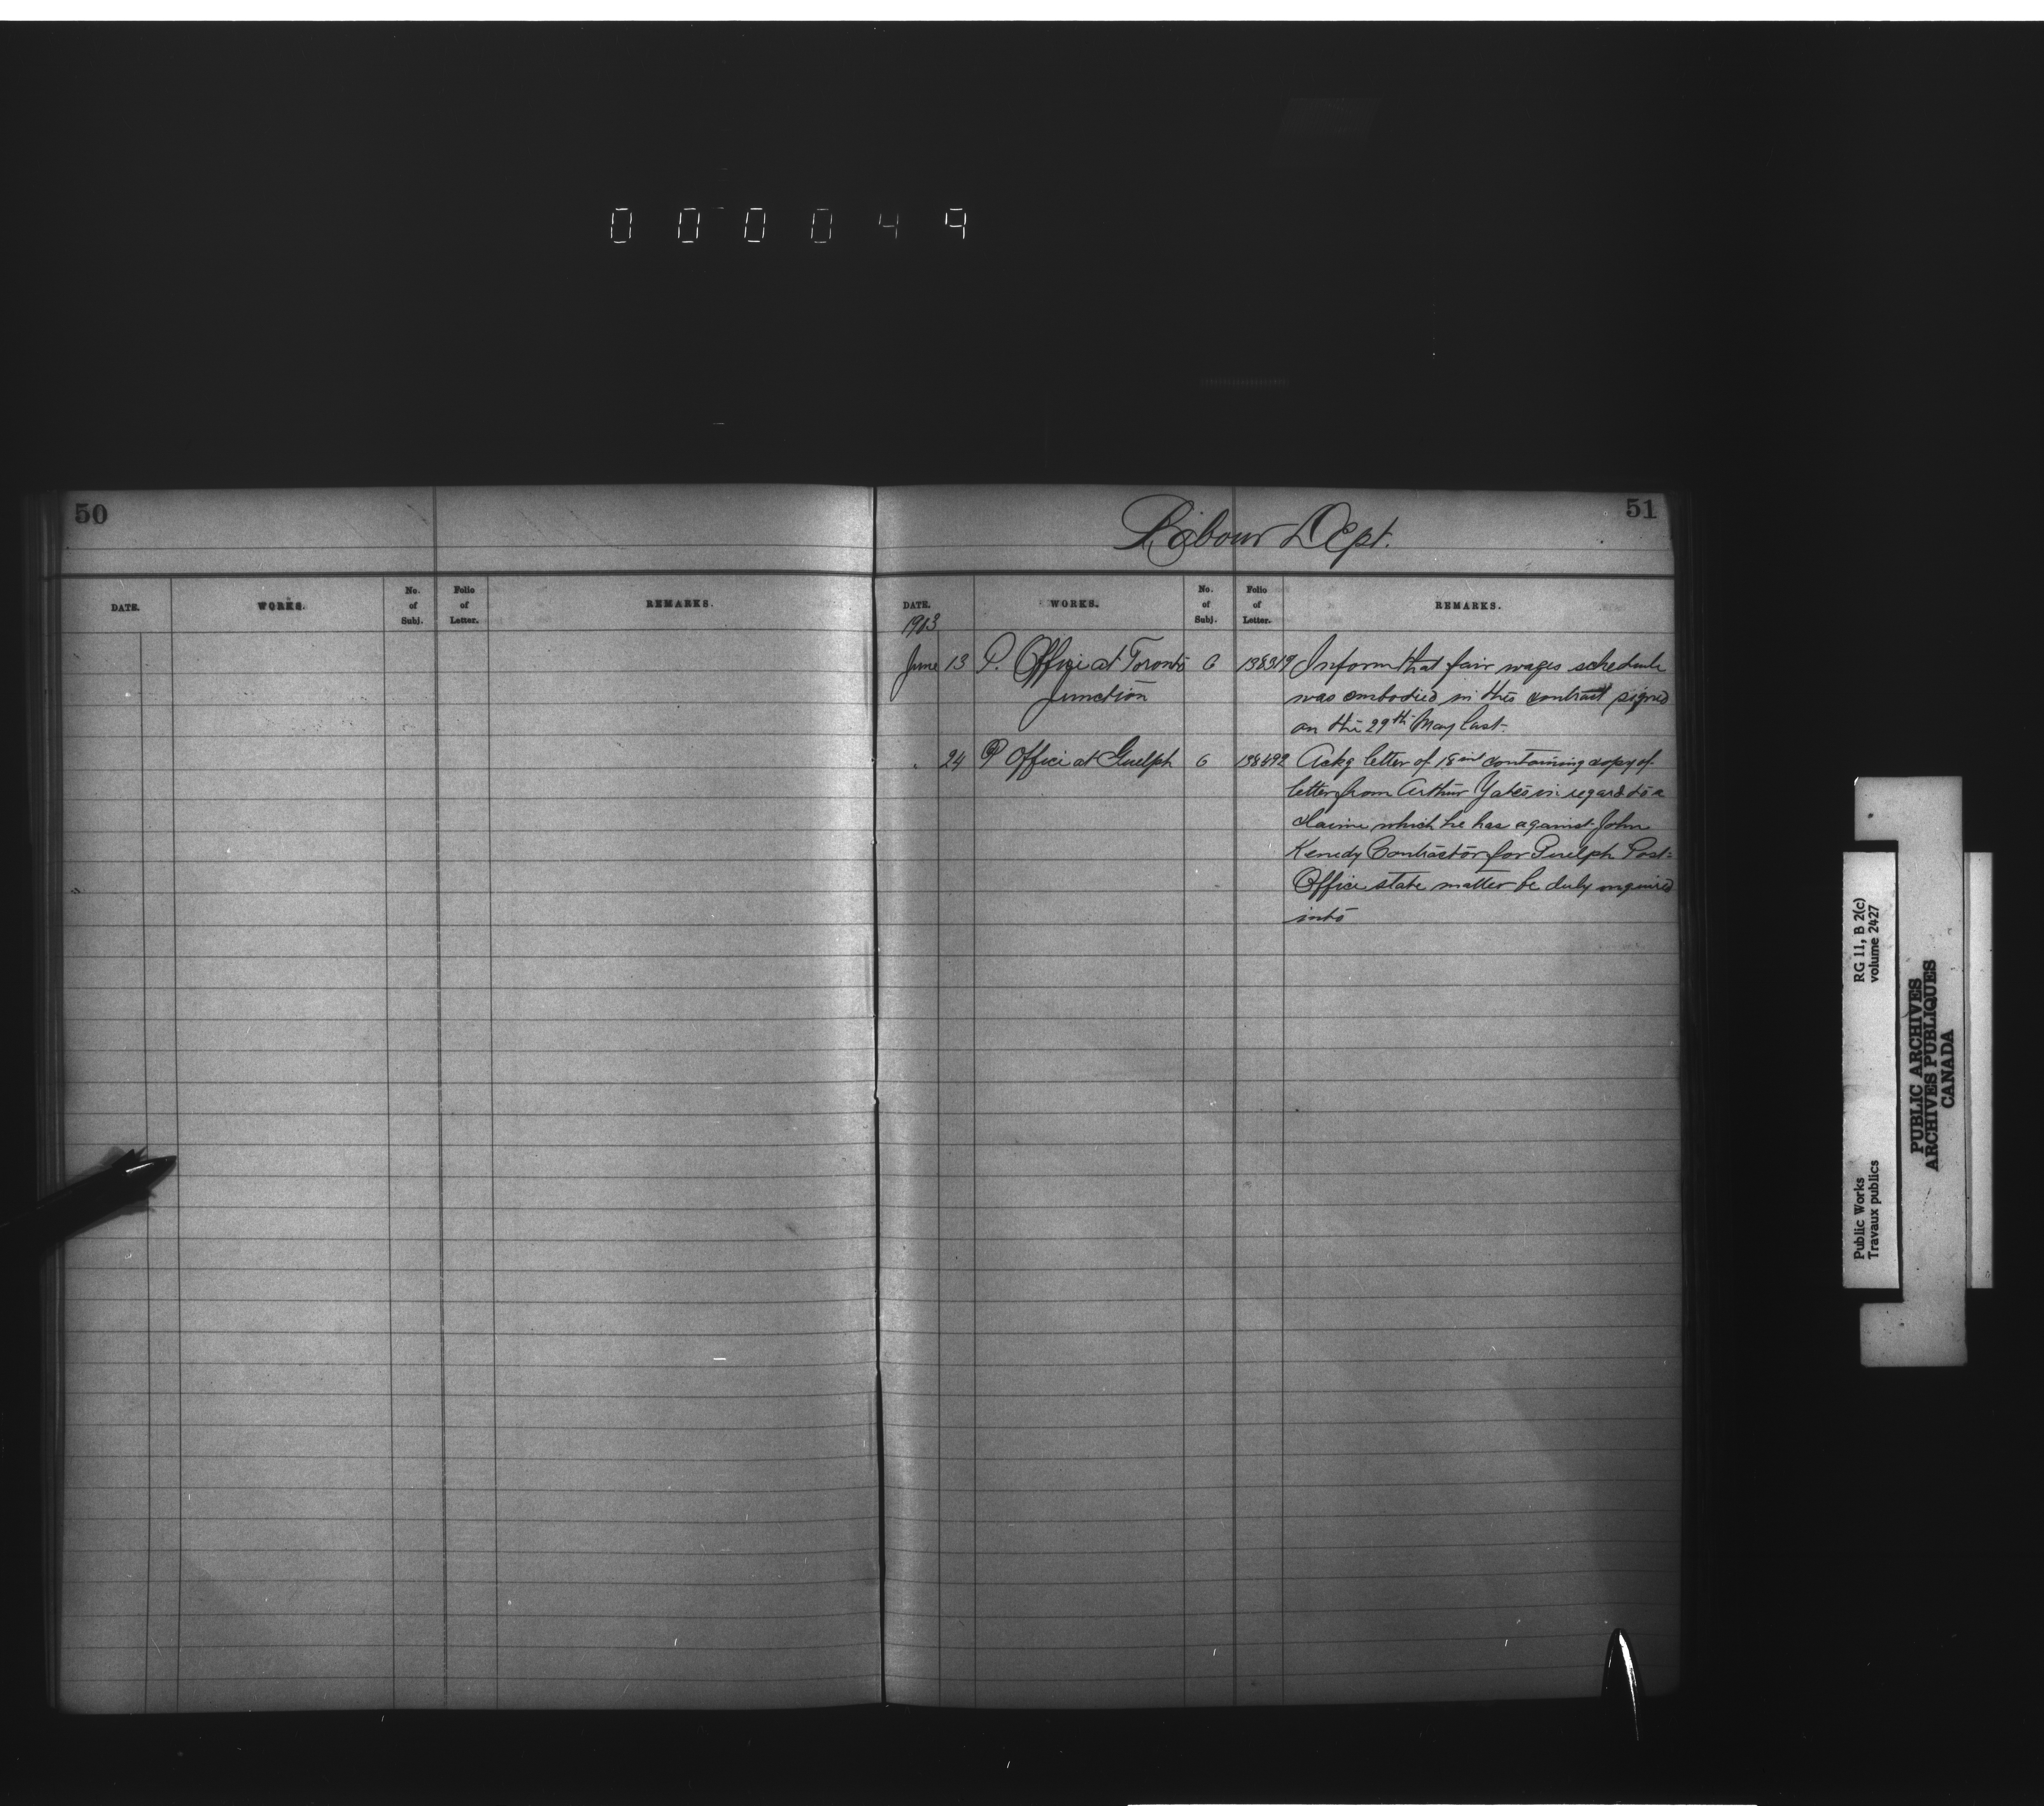 000049
50
DATE. WORKS. No. of Subj. Folio of Letter. REMARKS.
51
Labour Dept.
DATE. WORKS. No. of Subj. Folio of Letter. REMARKS.
1903
June 13 P. Office at Toronto 6 138319 Inform that fair wages schedule
Junction was embodied in this contract signed
on the 29th May last.
" 24 P Office at Guelph 6 138492 Ackg letter of 18 inst containing copy of
letter from Arthur Yates in regard to a
claim which he has against John
Kenedy Contractor for Guelph Post
Office state matter be duly inquired
into
Public Works
Travaux publics
RG 11, B 2(c)
volume 2427
PUBLIC ARCHIVES
ARCHIVES PUBLIQUES
CANADA